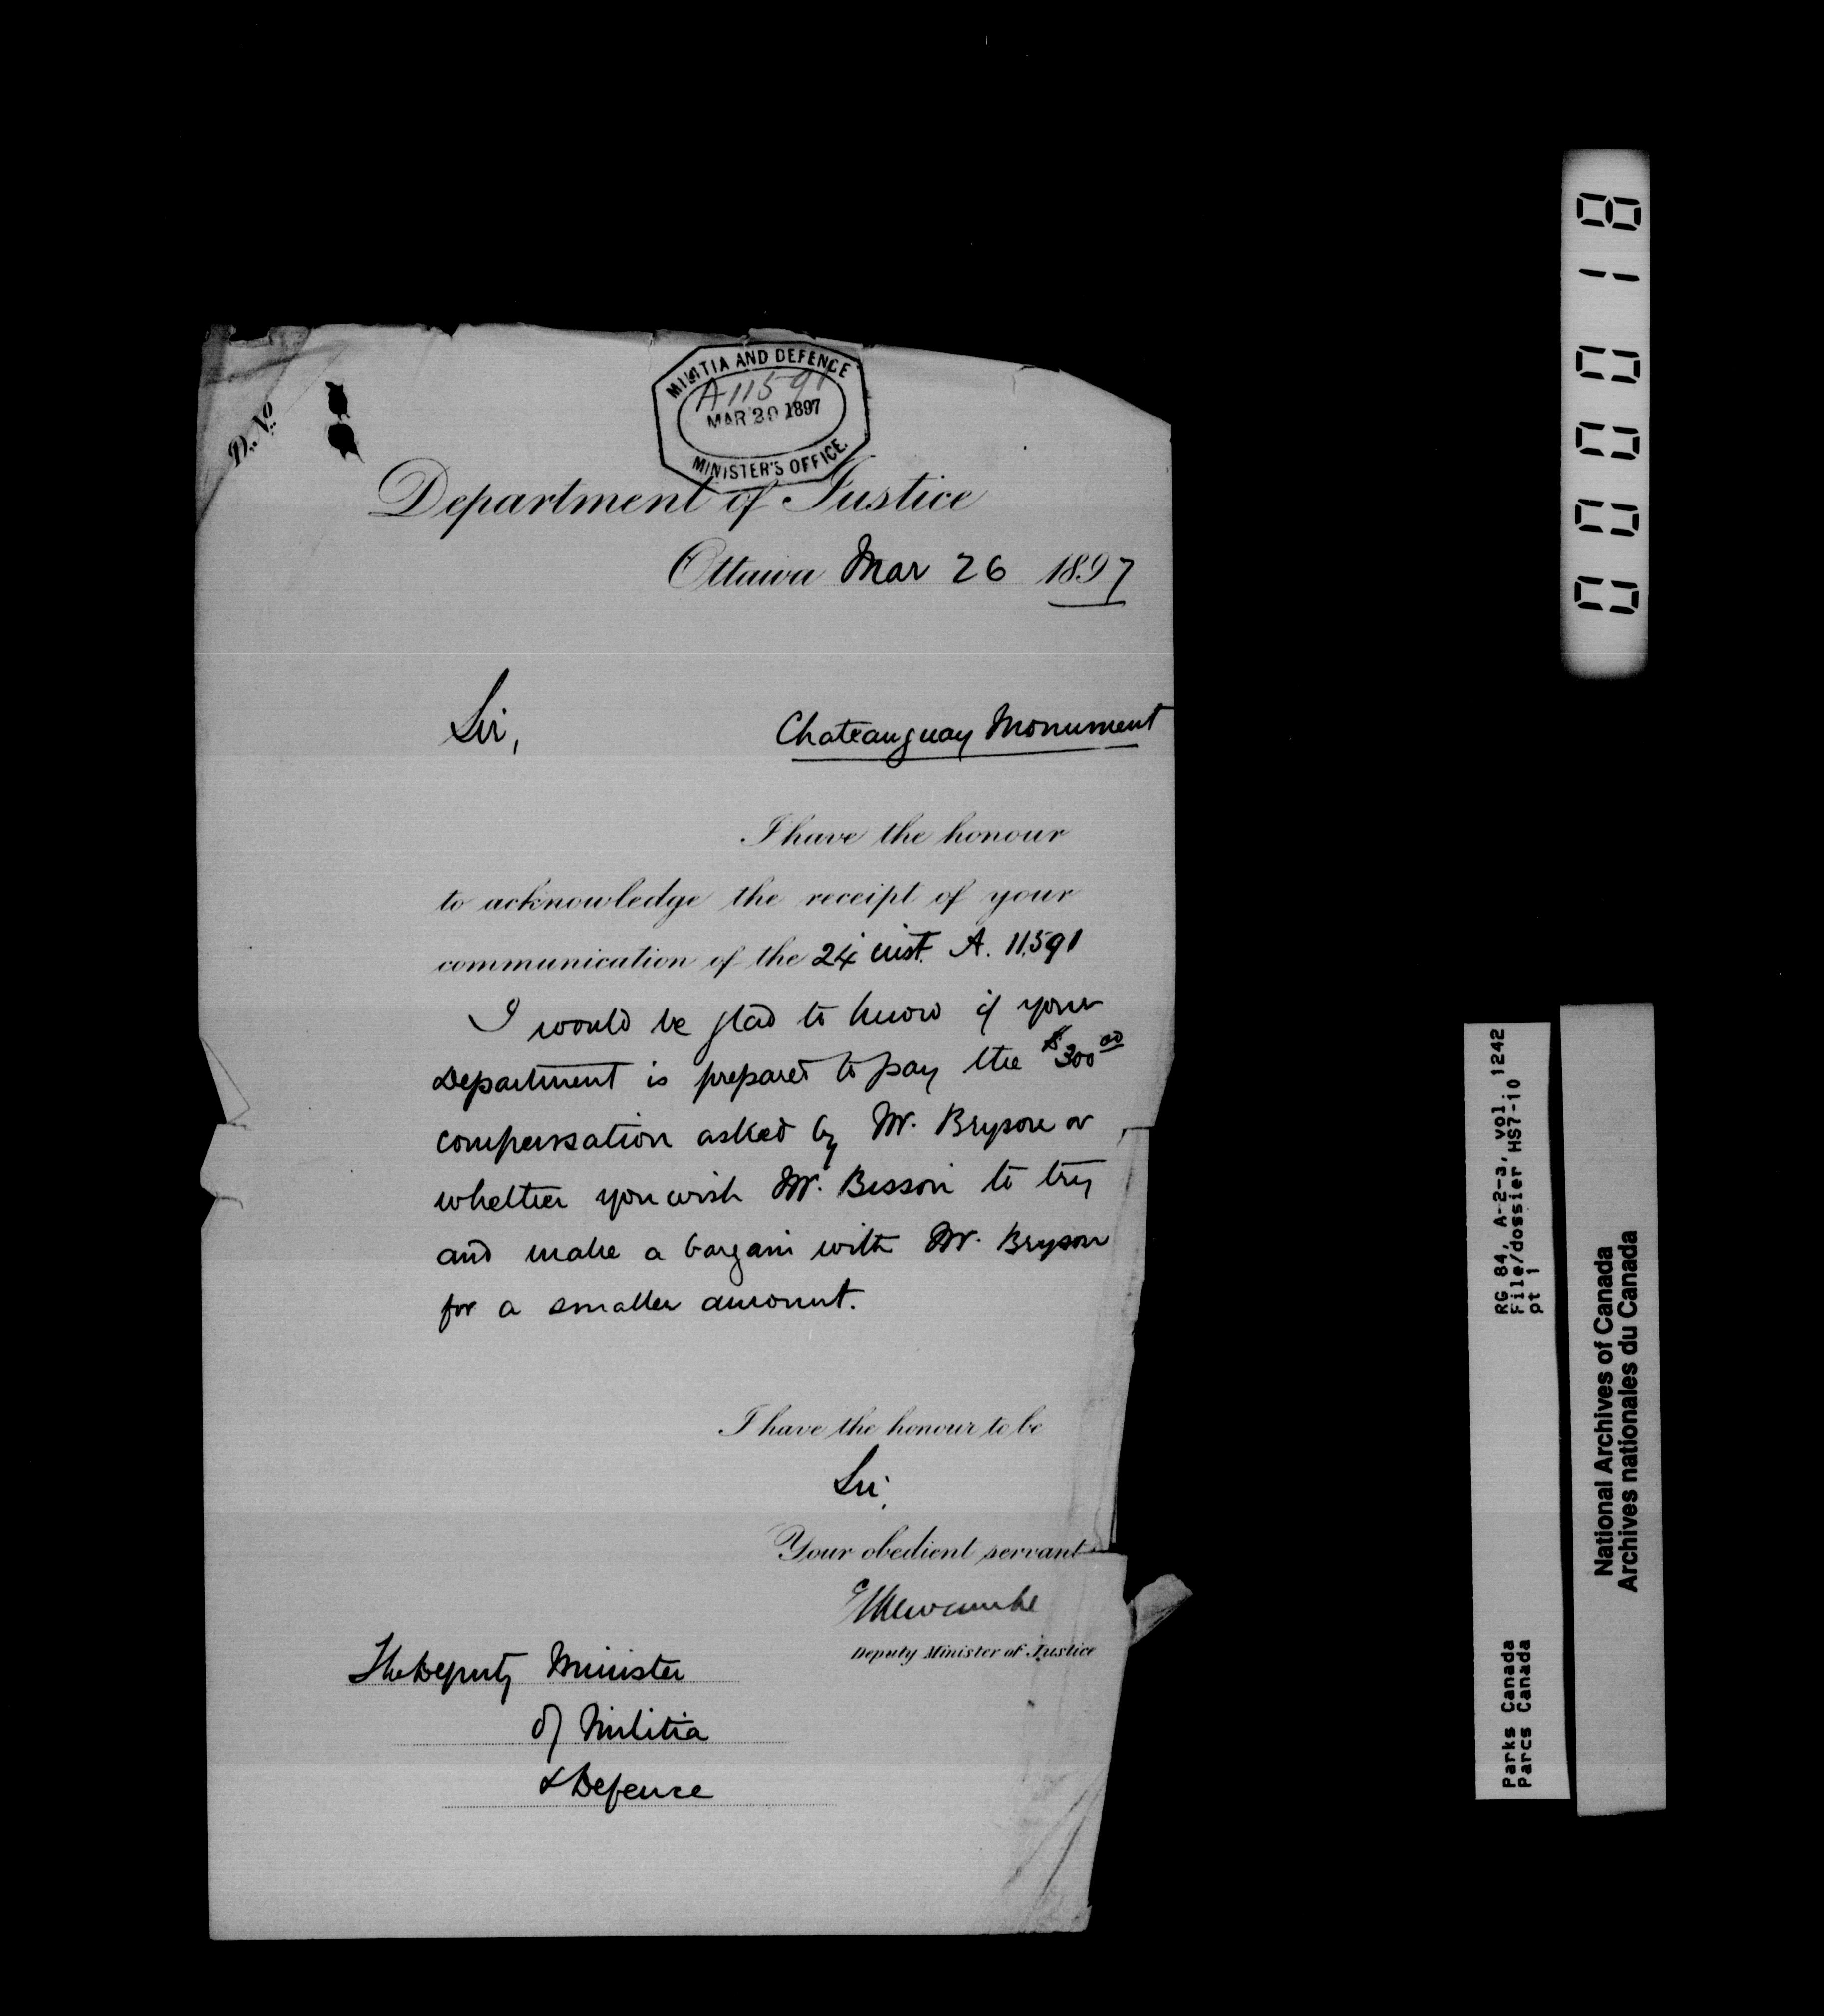 D. No
MILITIA AND DEFENCE
A11591
MAR 30 1897
MINISTER'S OFFICE.
Department of Justice
Ottawa Mar 26 1897
Sir,
Chateauguay Monument
I have the honour
to acknowledge the receipt of your
communication of the 24 inst. A. 11591
I would be glad to know if your
Department is prepared to pay the $300 00
compensation asked by Mr. Bryson or
whether you wish Mr. Bisson to try
and make a bargain with Mr. Bryson
for a smaller amount.
I have the honour to be
Sir,
Your obedient servant
E L Newcombe
Deputy Minister of Justice
The Deputy Minister
of Militia
& Defence
000018
RG 84, A-2-3, vol. 1242
File/dossier HS7-10
pt 1
Parks Canada
Parcs Canada
National Archives of Canada
Archives nationales du Canada